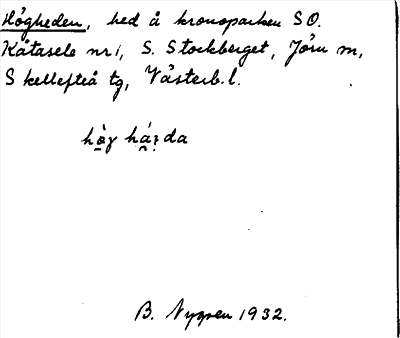 Högheden, hed å kronoparken SO.
Kåtasele nr 1, S. Stockberget, Jörn m,
Skellefteå tg, Västerb. l.
hò̤γ há̤ꝛda
B. Nygren 1932.